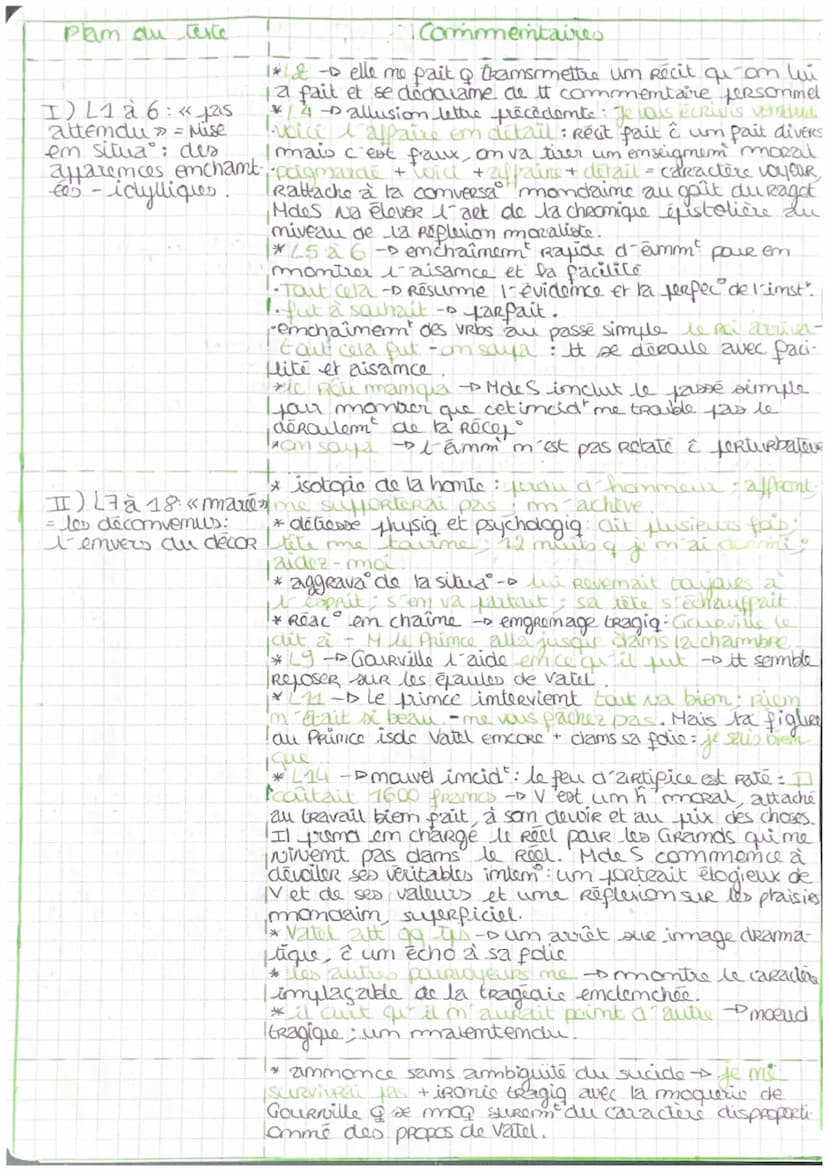 Plan du texte
Commentaires
I) L1 à 6 : « pas
attendu » = Mise
en situa° : des
apparences enchant-
ées - idylliques.
* L2 → elle ne fait q transmettre un récit qu'on lui
a fait et se dédouane de tt commentaire personnel
* L4 → allusion lettre précédente : Je vous écrivis vendredi
· voici l'affaire en détail : récit fait ĉ un fait divers
mais c'est faux, on va tirer un enseignemt moral
· poignardé + voici + affaire + détail = caractère voyeur,
Rattache à la conversa° mondaine au goût du ragot
MdeS va élever l'art de la chronique épistolière au
niveau de la Réflexion moraliste.
* L5 à 6 → enchaînemt Rapide d'énmt pour en
montrer l'aisance et la facilité
· Tout cela → Résume l'évidence et la perfec° de l'inst^t.
· fut à souhait → parfait.
· enchaînemt des vRbs au passé simple le Roi arriva-
tout cela fut - on soupa : tt se déroule avec faci-
lité et aisance.
* le Rôti manqua → MdeS inclut le passé simple
pour montrer que cet incidt ne trouble pas le
déroulemt de la Récep°
* on soupa → l'énmt n'est pas Relaté ĉ perturbateur
II) L7 à 18 : « marée »
= les déconvenues :
l'envers du décor
* isotopie de la honte : perdu d'honneur ; affront
ne supporterai pas ; m'achève.
* détresse physiq et psychologiq : dit plusieurs fois ;
tête me tourne ; 12 nuits q je n'ai dormi ;
aidez-moi
* aggrava° de la situa° → lui Revenait toujours à
l'esprit ; s'en va partout ; sa tête s'échauffait
* Réac° en chaîne → engrenage tragiq : Gourville le
dit à - M le Prince alla jusque dans la chambre
* L9 → Gourville l'aide en ce qu'il put → tt semble
Reposer sur les épaules de Vatel.
* L11 → Le prince intervient tout va bien ; Rien
n'était si beau - ne vous fâchez pas. Mais la figure
du Prince isole Vatel encore + dans sa folie : je sais bien
que
* L14 → nouvel incidt : le feu d'artifice est Raté : Il
coûtait 1600 francs → V est un h moral, attaché
au travail bien fait, à son devoir et au prix des choses.
Il prend en charge le Réel pour les Grands qui ne
vivent pas dans le Réel. MdeS commence à
dévoiler ses véritables inten° : un portrait élogieux de
V et de ses valeurs et une Réflexion sur les plaisirs
mondain, superficiel.
* Vatel att qq tps → un arrêt sur image drama-
tique, ĉ un écho à sa folie
* les autres pourvoyeurs ne → montre le caractère
implaçable de la tragédie enclenchée.
* il cuit qu'il n'aurait point d'autre → noeud
tragique ; un malentendu.
* annonce sans ambiguïté du sucide → je ne
survivrai pas + ironie tragiq avec la moquerie de
Gourville q se moq suremt du caractère disproporti-
onné des propos de Vatel.